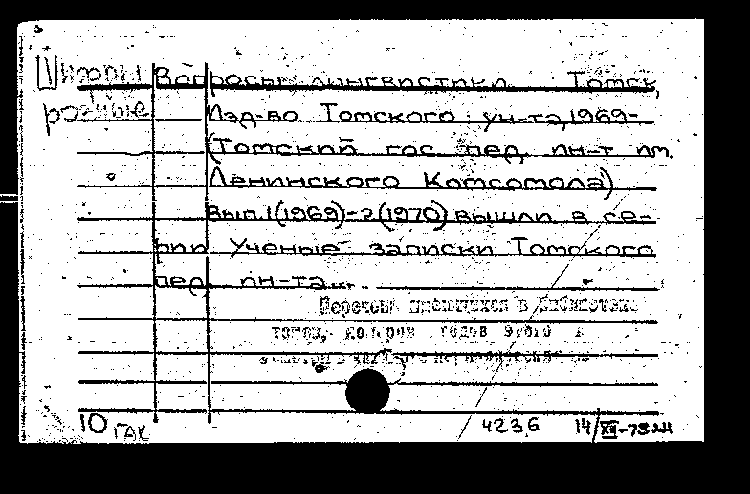 Шифры Вопросы лингвистики. Томск,
розные Изд-во Томского ун-та, 1969-.
(Томский гос. пед. ин-т им.
Ленинского Комсомола)
Вып. 1(1969)-2(1970) вышли в се-
рии Ученые записки Томского
пед. ин-та
Перечень имеющихся в библиотеке
томов, номеров годов этого
10 ГАК 4236 14/XII-78